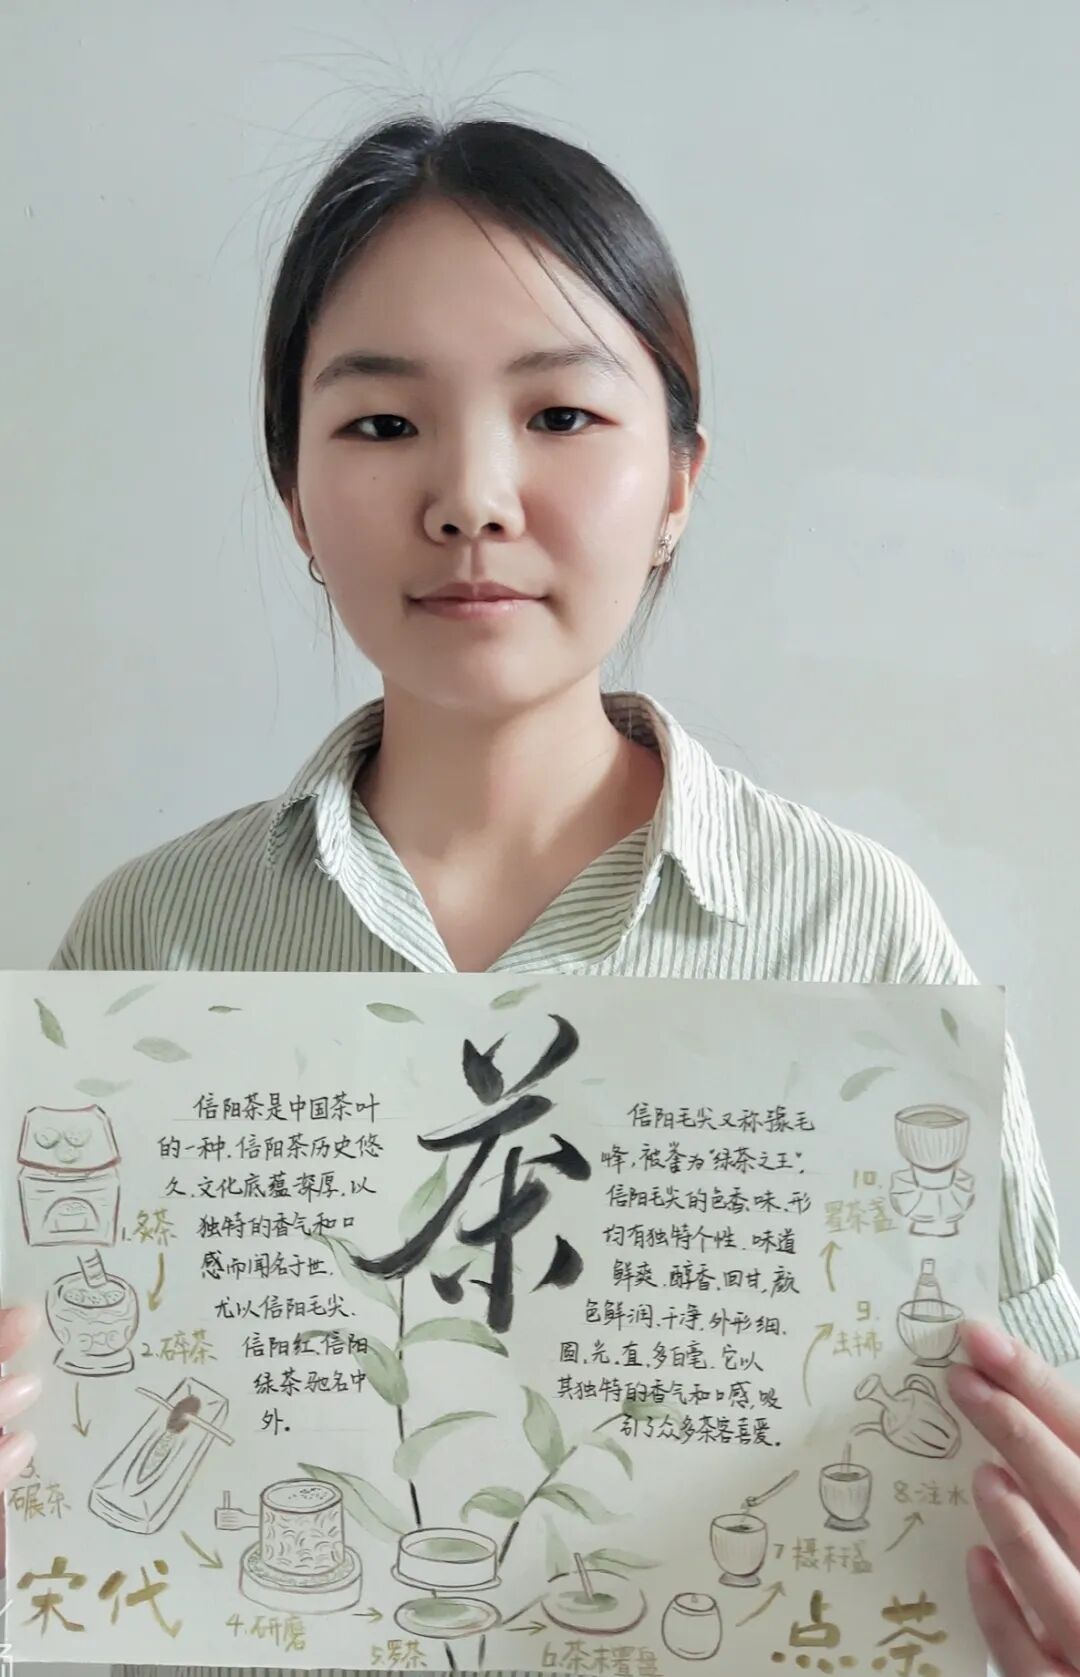 茶
信阳茶是中国茶叶
的一种.信阳茶历史悠
久.文化底蕴深厚.以
独特的香气和口
感而闻名于世.
尤以信阳毛尖.
信阳红.信阳
绿茶驰名中
外。
信阳毛尖又称豫毛
峰,被誉为“绿茶之王”.
信阳毛尖的色.香.味.形
均有独特个性.味道
鲜爽.醇香.回甘,颜
色鲜润.干净.外形细.
圆.光.直.多白毫.它以
其独特的香气和口感,吸
引了众多茶客喜爱。
1.炙茶
2.碎茶
3.碾茶
4.研磨
5.罗茶
6.茶末置盘
8.注水
9.击拂
10.置茶盏
宋代
点茶